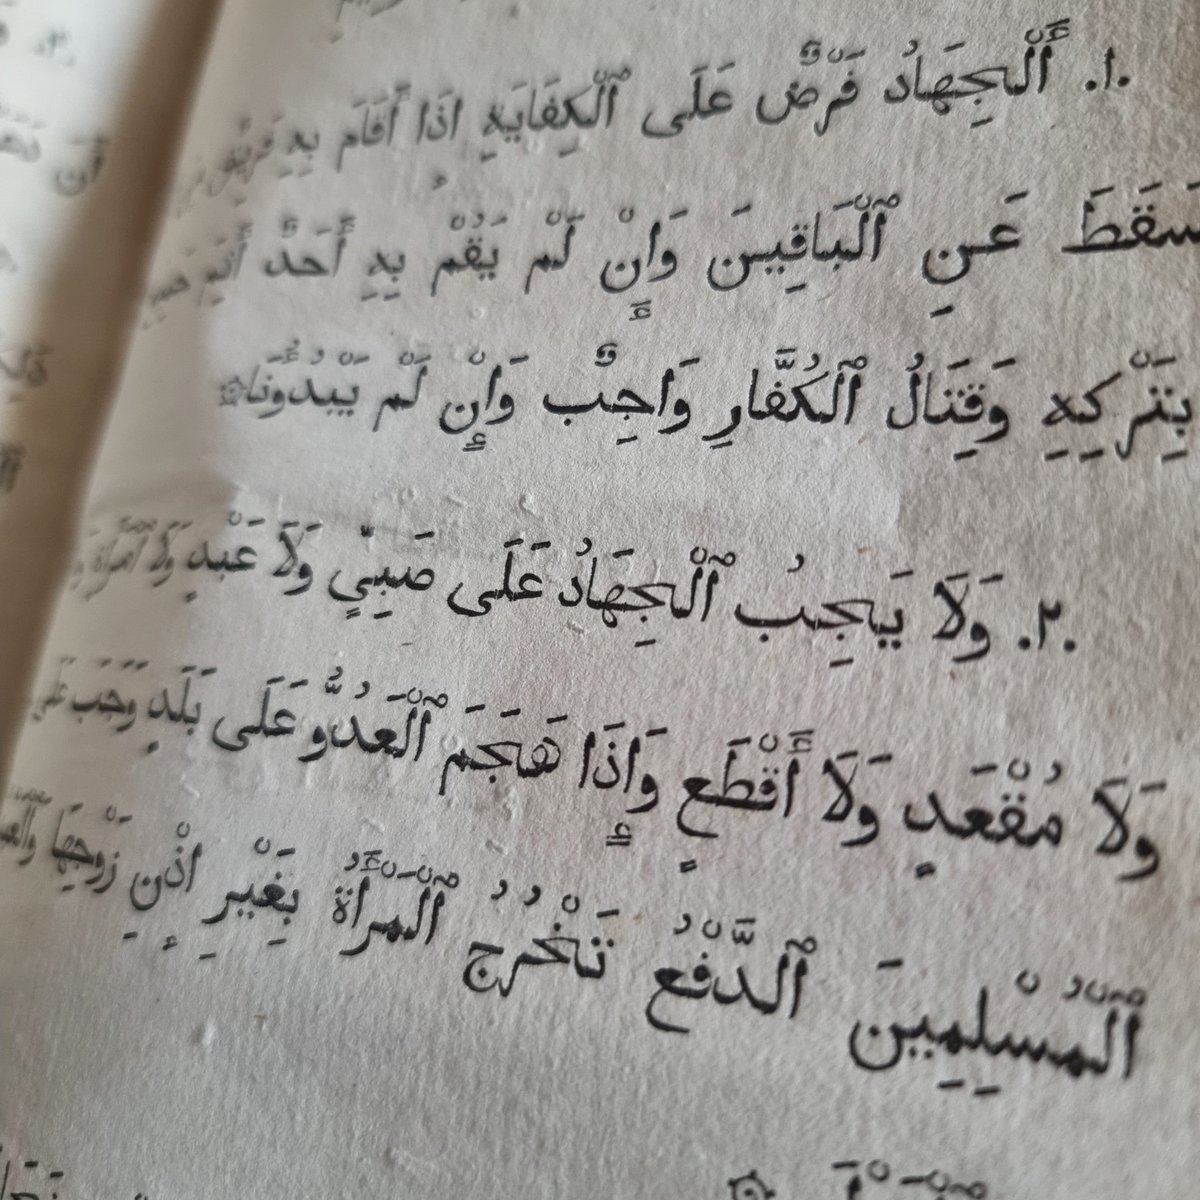 .١٠ ٱَلْجِهَادُ فَرْضٌ عَلَى ٱلْكِفَايَةِ اذَا أَقَامَ بِهِ
سَقَطَ عَنِ ٱلْبَاقِينَ وَإِنْ لَمْ يَقُمْ بِهِ أَحَدٌ أَثِمَ
بِتَرْكِهِ وَقِتَالُ ٱلكُفَّارِ وَاجِبٌ وَإِنْ لَمْ يَبْدُءُونَا
.٢. وَلَا يَجِبُ ٱلْجِهَادُ عَلَى صَبِيٍّ وَلَا عَبْدٍ وَلَا ٱمْرَأَةٍ
وَلَا مُقْعَدٍ وَلَا أَقْطَعٍ وَإِذَا هَجَمَ ٱلْعَدُوُّ عَلَى بَلَدٍ وَجَبَ عَلَى
ٱلْمُسْلِمِينَ ٱلدَّفْعُ تَخْرُجُ ٱلْمَرْأَةُ بِغَيْرِ إِذْنِ زَوْجِهَا